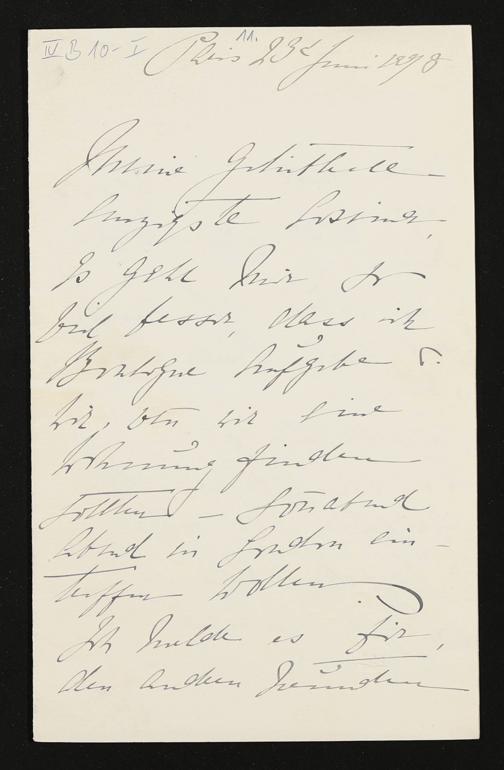 IV B 10-I
11.
Paris 23t Juni 1898
Meine Geliebteste
einzigste Cosima,
Es geht mir so
viel besser, dass ich
Boulogne aufgebe u.
wir, wenn wir eine
Wohnung finden
sollten – Sonabend
Abend in London ein-
treffen wollen
Ich melde es Dir,
den andern Freunden